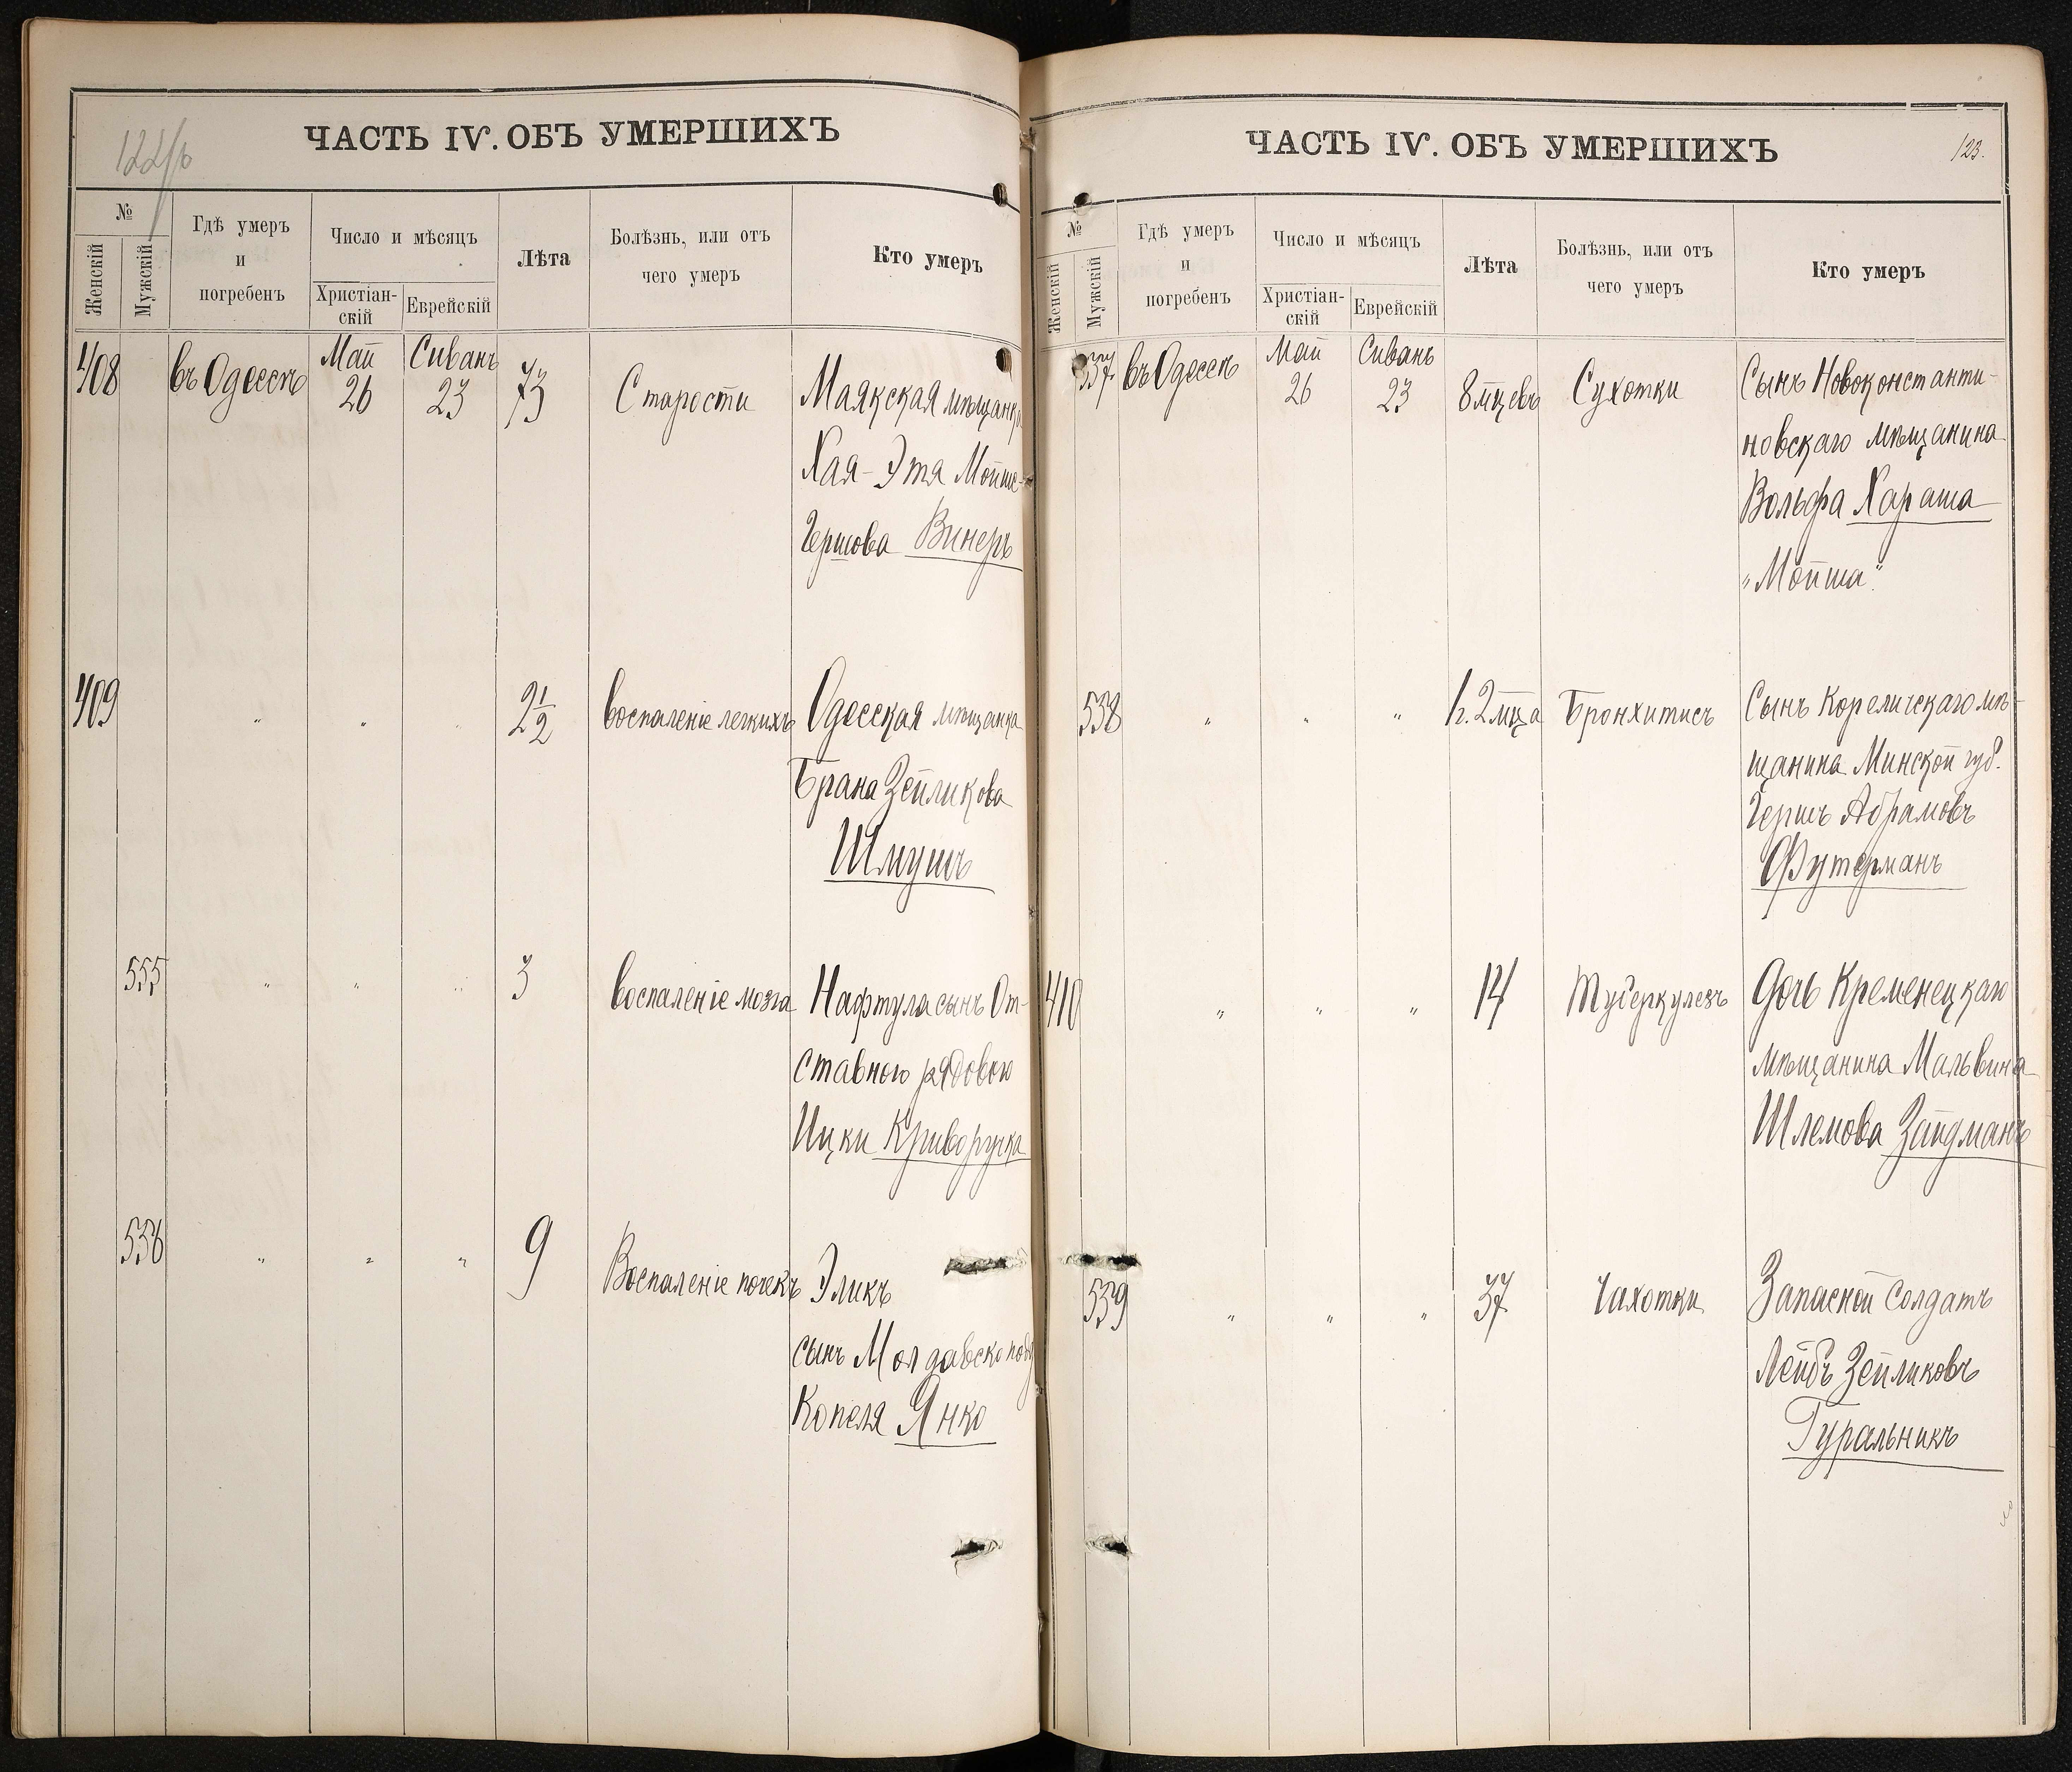 122/б
ЧАСТЬ IV. ОБЪ УМЕРШИХЪ
№
Женскій
Мужскій
Гдѣ умеръ
и
погребенъ
Число и мѣсяцъ
Христіан-
скій
Еврейскій
Лѣта
Болѣзнь, или отъ
чего умеръ
Кто умеръ
408 въ Одессѣ Май 26 Сиванъ 23 73 Старости Маякская мѣщанка
Хая-Этя Мойше-
Гершова Винеръ
409 " " " 2 1/2 воспаленіе легкихъ Одесская мѣщанка
Брана Зейликова
Шмушъ
535 " " " 3 воспаленіе мозга Нафтула сынъ От-
ставного рядового
Ицки Криворучка
536 " " " 9 Воспаленіе почекъ Эликъ
сынъ Молдавскоподд
Копеля Янко
ЧАСТЬ IV. ОБЪ УМЕРШИХЪ
123.
№
Женскій
Мужскій
Гдѣ умеръ
и
погребенъ
Число и мѣсяцъ
Христіан-
скій
Еврейскій
Лѣта
Болѣзнь, или отъ
чего умеръ
Кто умеръ
537 въ Одессѣ Май 26 Сиванъ 23 8 мцевъ Сухотки Сынъ Новоконстанти-
новскаго мѣщанина
Вольфа Хараша
"Мойша"
538 " " " 1 г. 2 мца Бронхитисъ Сынъ Кореличскаго мѣ-
щанина Минской губ.
Гершъ Абрамовъ
Футерманъ
410 " " " 14 Туберкулезъ Дочь Кременецкаго
мѣщанина Мальвина
Шлемова Зайдманъ
539 " " " 37 Чахотки Запасной Солдатъ
Лейбъ Зейликовъ
Гуральникъ